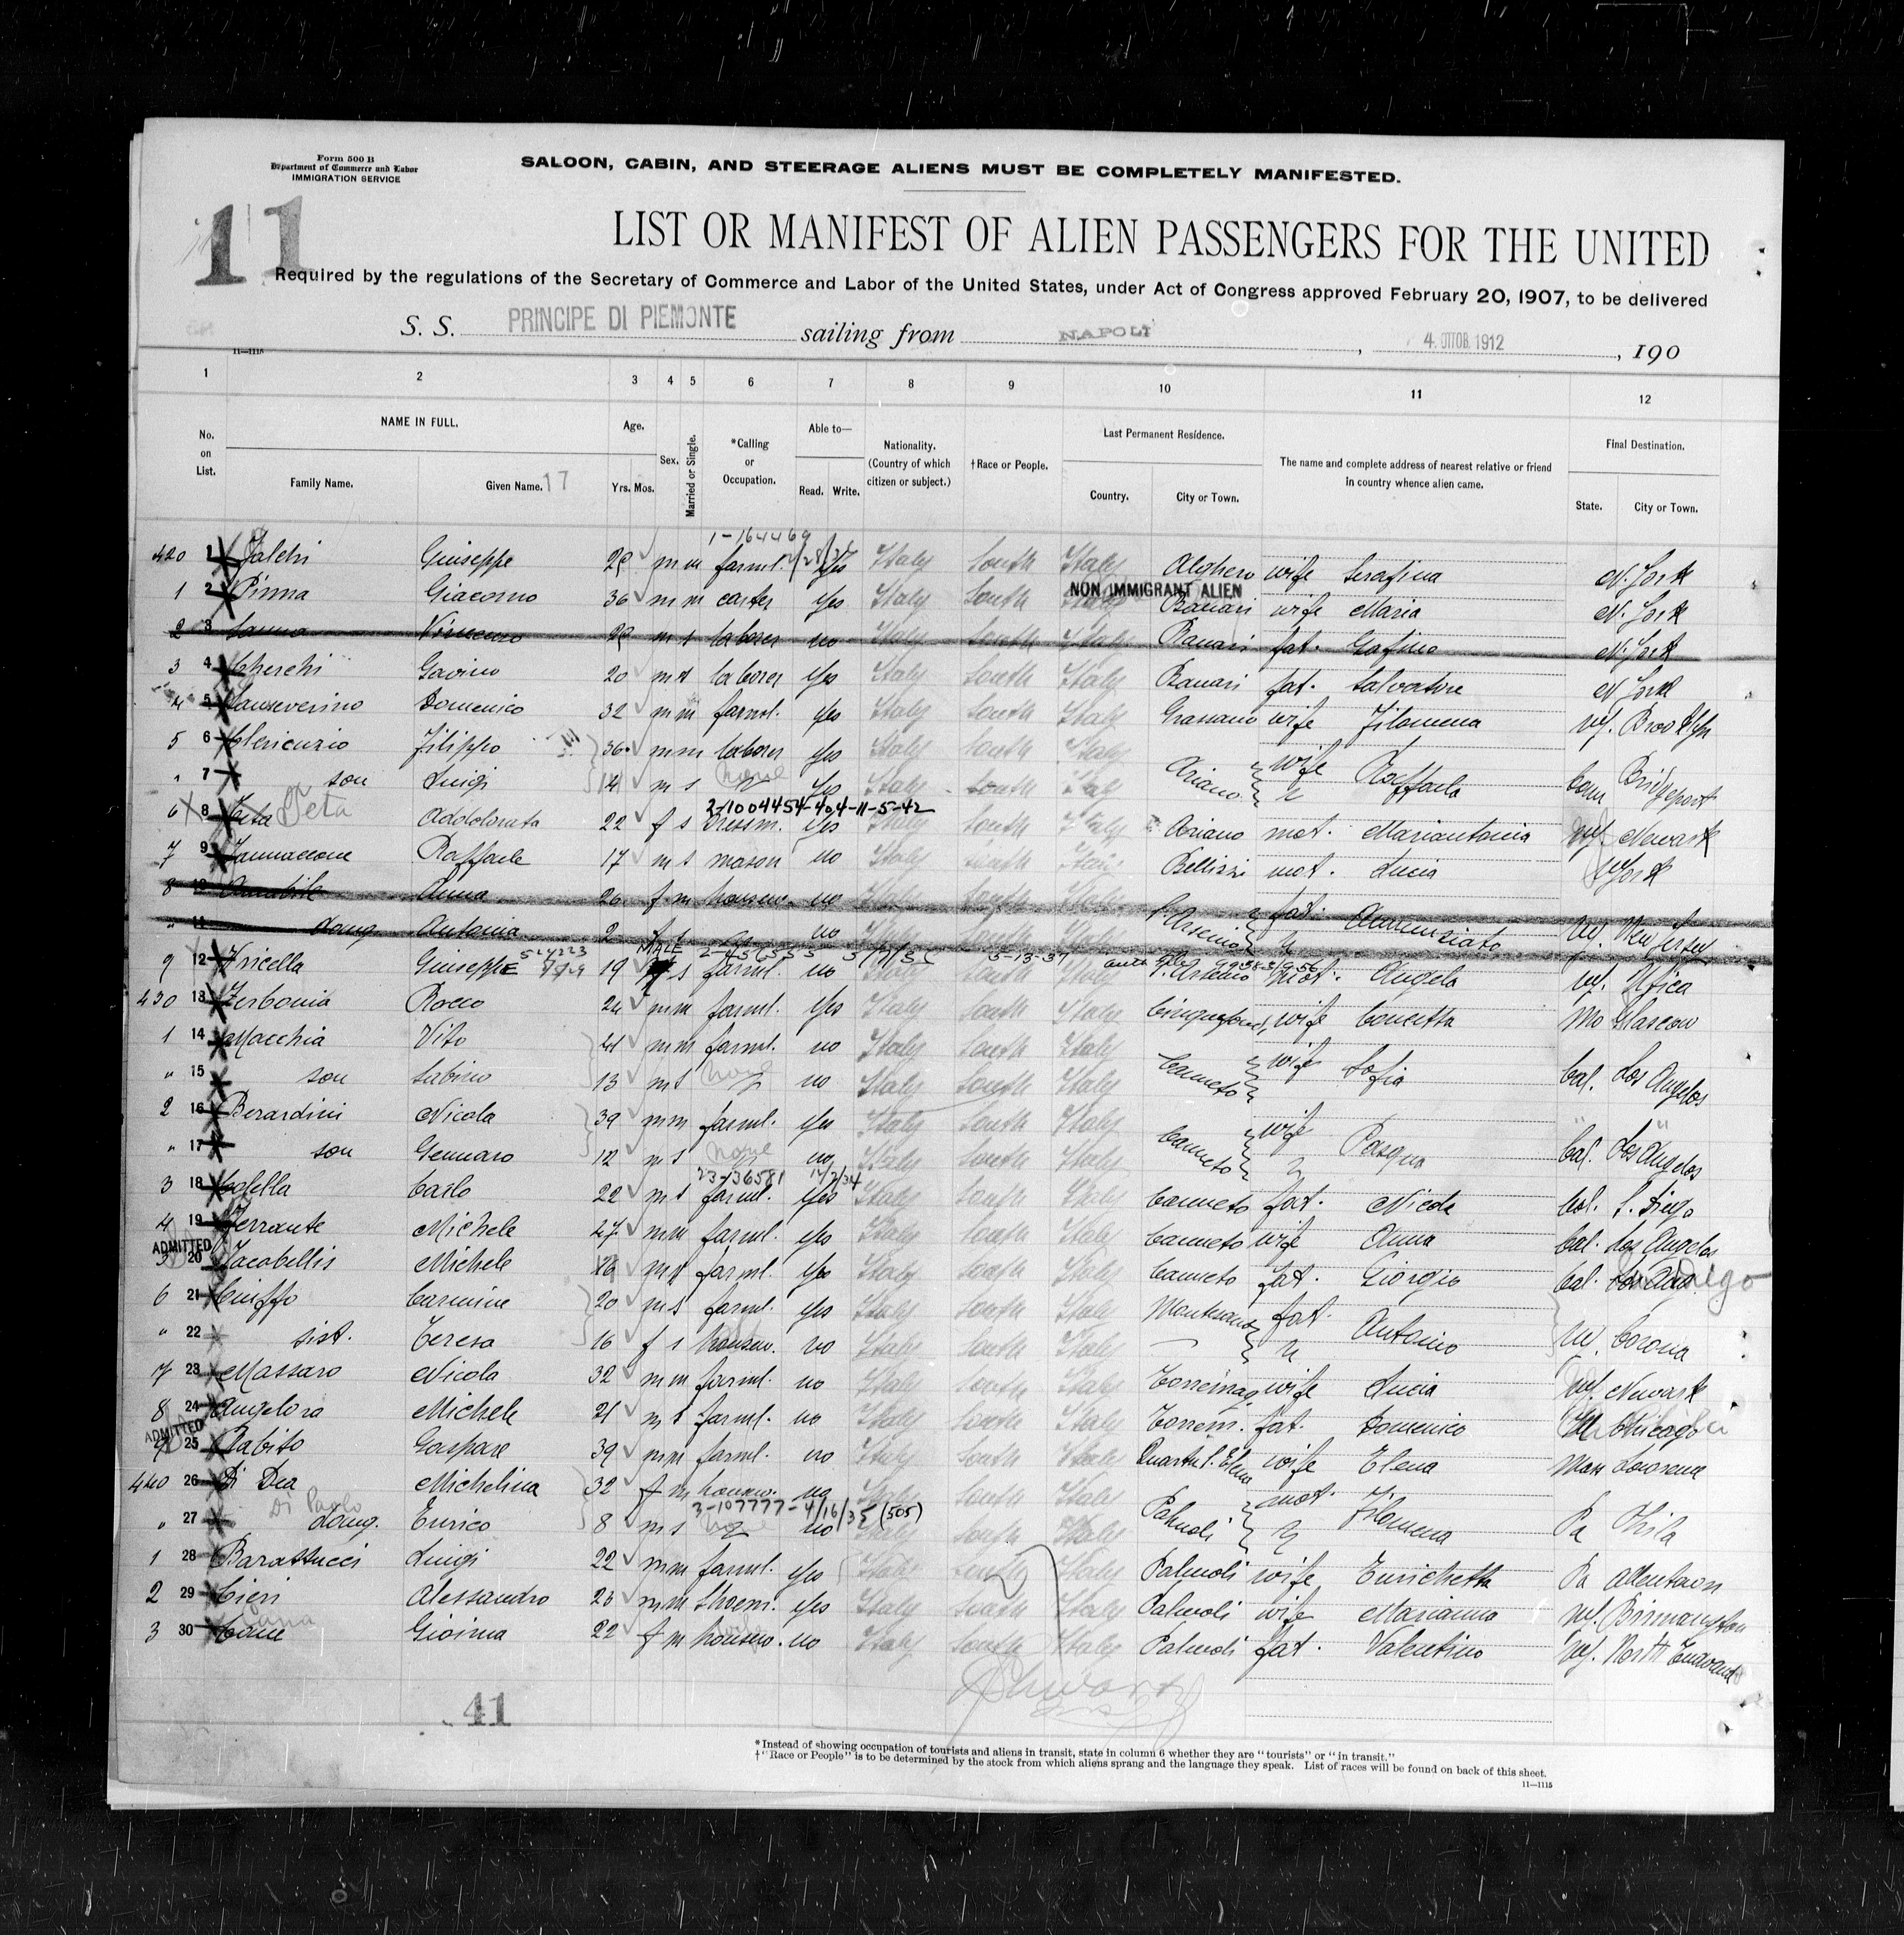 Form 500 B
Department of Commerce and Labor
IMMIGRATION SERVICE
SALOON, CABIN, AND STEERAGE ALIENS MUST BE COMPLETELY MANIFESTED.
11
LIST OR MANIFEST OF ALIEN PASSENGERS FOR THE UNITED
Required by the regulations of the Secretary of Commerce and Labor of the United States, under Act of Congress approved February 20, 1907, to be delivered
S. S. PRINCIPE DI PIEMONTE sailing from NAPOLI, 4. OTTOB. 1912, 190
11—1115
1 2 3 4 5 6 7 8 9 10 11 12
No. on List. NAME IN FULL. Family Name. Given Name. 17 Age. Yrs. Mos. Sex. Married or Single. *Calling or Occupation. Able to— Read. Write. Nationality. (Country of which citizen or subject.) †Race or People. Last Permanent Residence. Country. City or Town. The name and complete address of nearest relative or friend in country whence alien came. Final Destination. State. City or Town.
1-164469
420 1 Falchi Giuseppe m m farml. Yes Italy South Italy Alghero wife Serafina N. York
NON IMMIGRANT ALIEN
1 2 Pinna Giacomo 36 m m carter Yes Italy South Italy Banari wife Maria N. York
2 3 Sanna m s laborer no Italy South Italy Banari fat. Gafino N. York
3 4 Cherchi Gavino 20 m s laborer Yes Italy South Italy Banari fat. Salvatore N. York
4 5 Sanseverino Domenico 32 m m farml. Yes Italy South Italy Grassano wife Filomena NY. Brooklyn
5 6 Clericuzio Filippo 36 m m laborer Yes Italy South Italy Ariano wife Raffaela Conn Bridgeport
" 7 son Luigi 14 m s none Yes Italy South Italy
2-1004454-404-11-5-42
6 8 Teta Addolorata 22 f s dressm. Yes Italy South Italy Ariano mot. Mariantonia NJ. Newark
7 9 Iannaccone Raffaele 17 m s mason no Italy South Italy Bellizzi mot. Lucia N York
8 10 Annabile Anna 26 f m housew. no Italy South Italy S. Arsenio fat. Annunziato NY. New Jersey
" 11 daug. Antonia 2 f s no Italy South Italy
MALE 5-13-37
9 12 Tricella Giuseppe 19 s farml. no Italy South Italy S. Arsenio mot. Angela NY. Utica
430 13 Zerbonia Rocco 24 m m farml. Yes Italy South Italy Cinquefrondi wife Concetta Mo Glascow
1 14 Macchia Vito 41 m m farml. no Italy South Italy Canneto wife Sofia Cal. Los Angelos
" 15 son Sabino 13 m s none no Italy South Italy
2 16 Berardini Nicola 39 m m farml. Yes Italy South Italy Canneto wife Pasqua Cal. Los Angelos
" 17 son Gennaro 12 m s none no Italy South Italy
23-136581
3 18 Colella Carlo 22 m s farml. Yes Italy South Italy Canneto fat. Nicola Cal. S. Diego
4 19 Ferrante Michele 47 m m farml. Yes Italy South Italy Canneto wife Anna Cal. Los Angelos
ADMITTED
5 20 Jacobellis Michele 16 m s farml. Yes Italy South Italy Canneto fat. Giorgio Cal. San Diego
6 21 Ciuffo Carmine 20 m s farml. Yes Italy South Italy Montesano fat. Antonio NY. Corona
" 22 sist. Teresa 16 f s housew. no Italy South Italy
7 23 Massaro Nicola 32 m m farml. no Italy South Italy wife Lucia NJ. Newark
8 24 Angelora Michele 21 m s farml. no Italy South Italy Torrem. fat. Domenico Ill Chicago
ADMITTED
9 25 Babito Gaspare 39 m m farml. no Italy South Italy Quartu S. Elena wife Elena Mass
440 26 Di Dea Michelina 32 f m housew. no Italy South Italy Palmoli mot. Filomena Pa Phila
Di Paolo 3-107777-4/16/35 (505)
" 27 daug. Enrico 8 m s none no Italy South Italy
1 28 Barattucci Luigi 22 m m farml. Yes Italy South Italy Palmoli wife Enrichetta Pa Allentown
2 29 Cieri Alessandro 26 m m shoem. Yes Italy South Italy Palmoli wife Marianna NY.
3 30 Gioima 22 f m housew. no Italy South Italy Palmoli fat. Valentino NY. North
41
*Instead of showing occupation of tourists and aliens in transit, state in column 6 whether they are "tourists" or "in transit."
†"Race or People" is to be determined by the stock from which aliens sprang and the language they speak. List of races will be found on back of this sheet.
11—1115